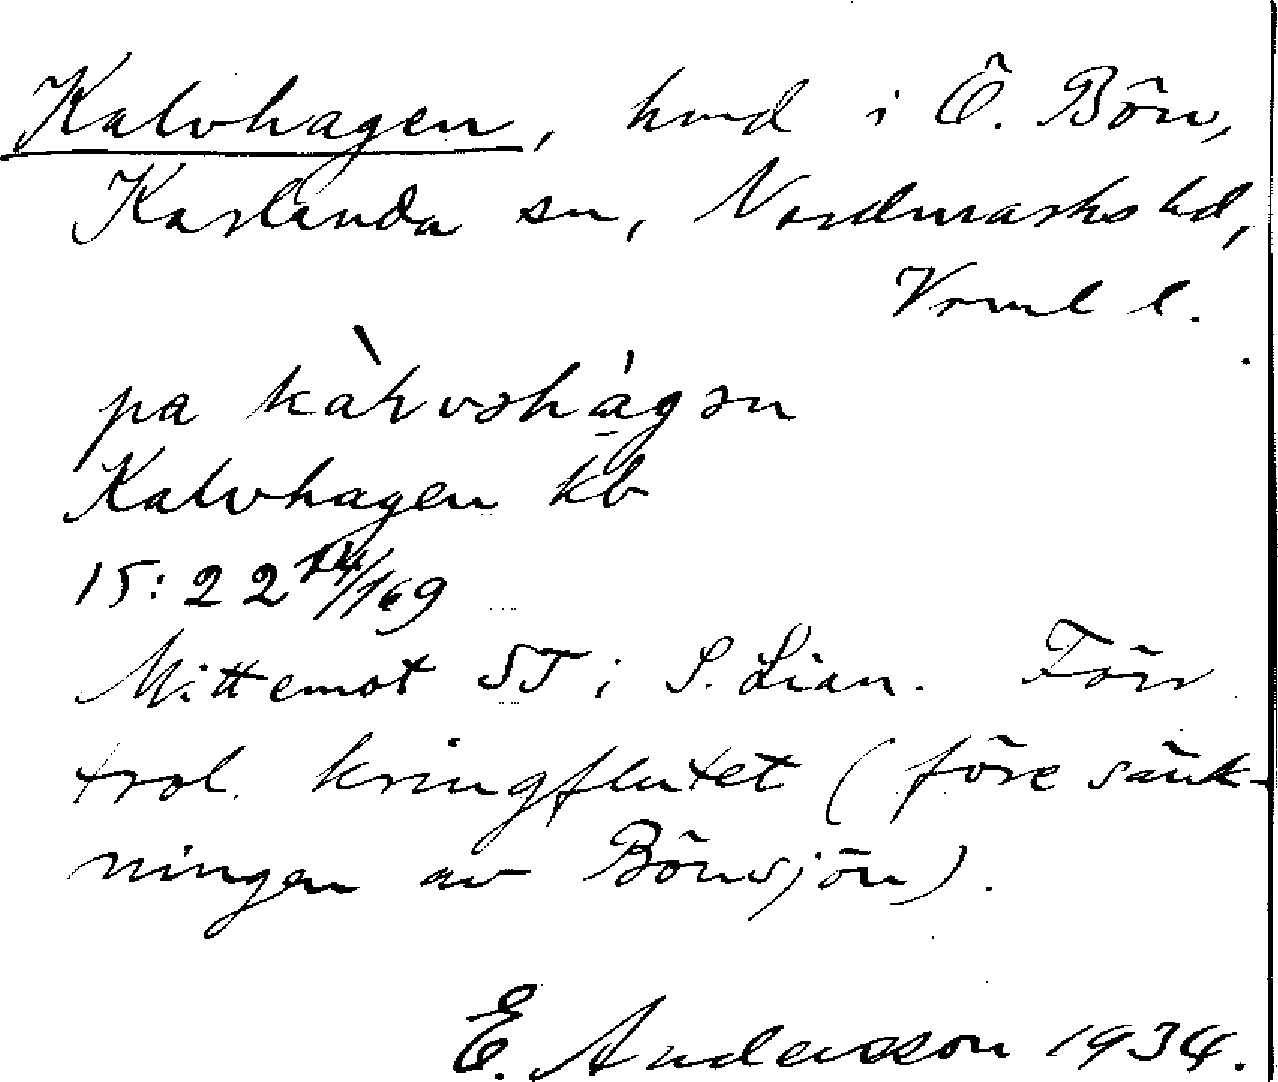 Kalvhagen, hmd i Ö. Bön,
Karlanda sn, Nordmarks hd,
Vrml l.
pa
Kalvhagen kb
15:22 14/169
Mittemot ST i S. Lian. Förr
trol. kringflutet (före sänk-
ningen av Bönsjön).
E. Andersson 1934.